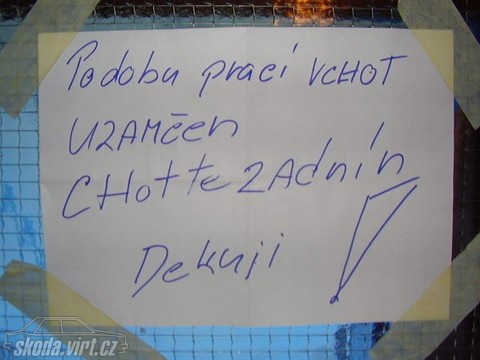 Podobu prací VCHOT
UZAMČEN
CHOTTE ZAdnín
Dekuji !
skoda.virt.cz